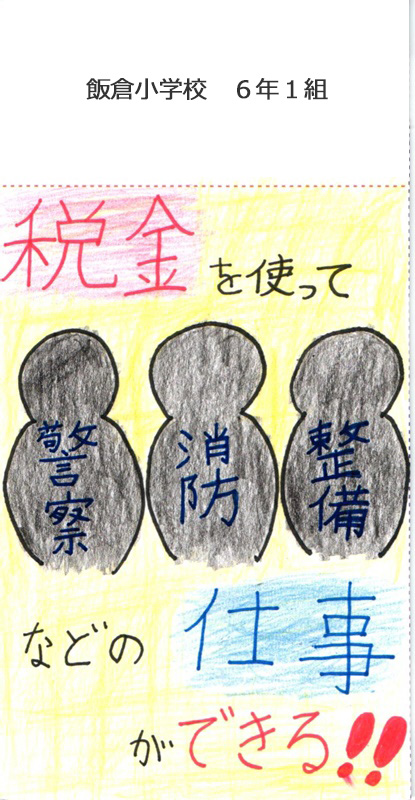 飯倉小学校　６年１組
税金を使って
警察
消防
整備
などの仕事
ができる!!